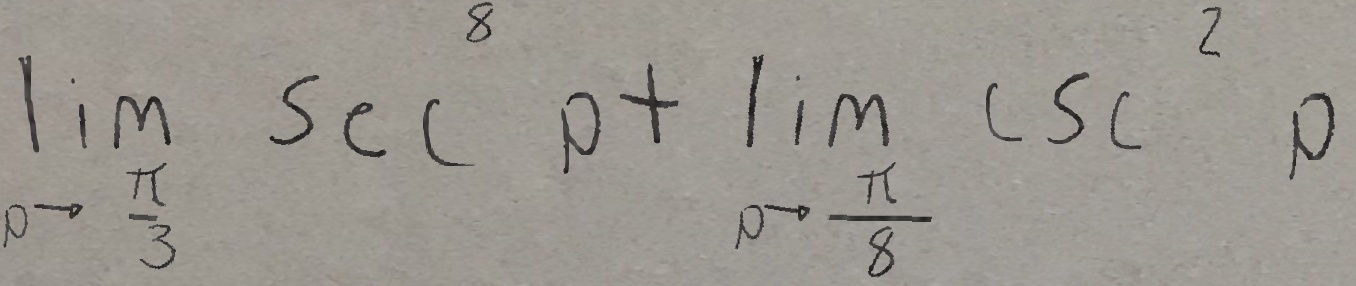 \lim_{p \to \frac{\pi}{3}} \sec^{8} p + \lim_{p \to \frac{\pi}{8}} \csc^{2} p